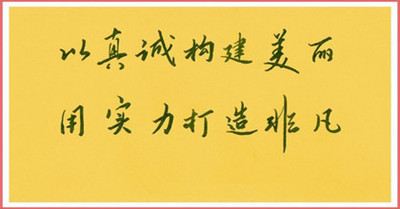 以真诚构建美丽
用实力打造非凡